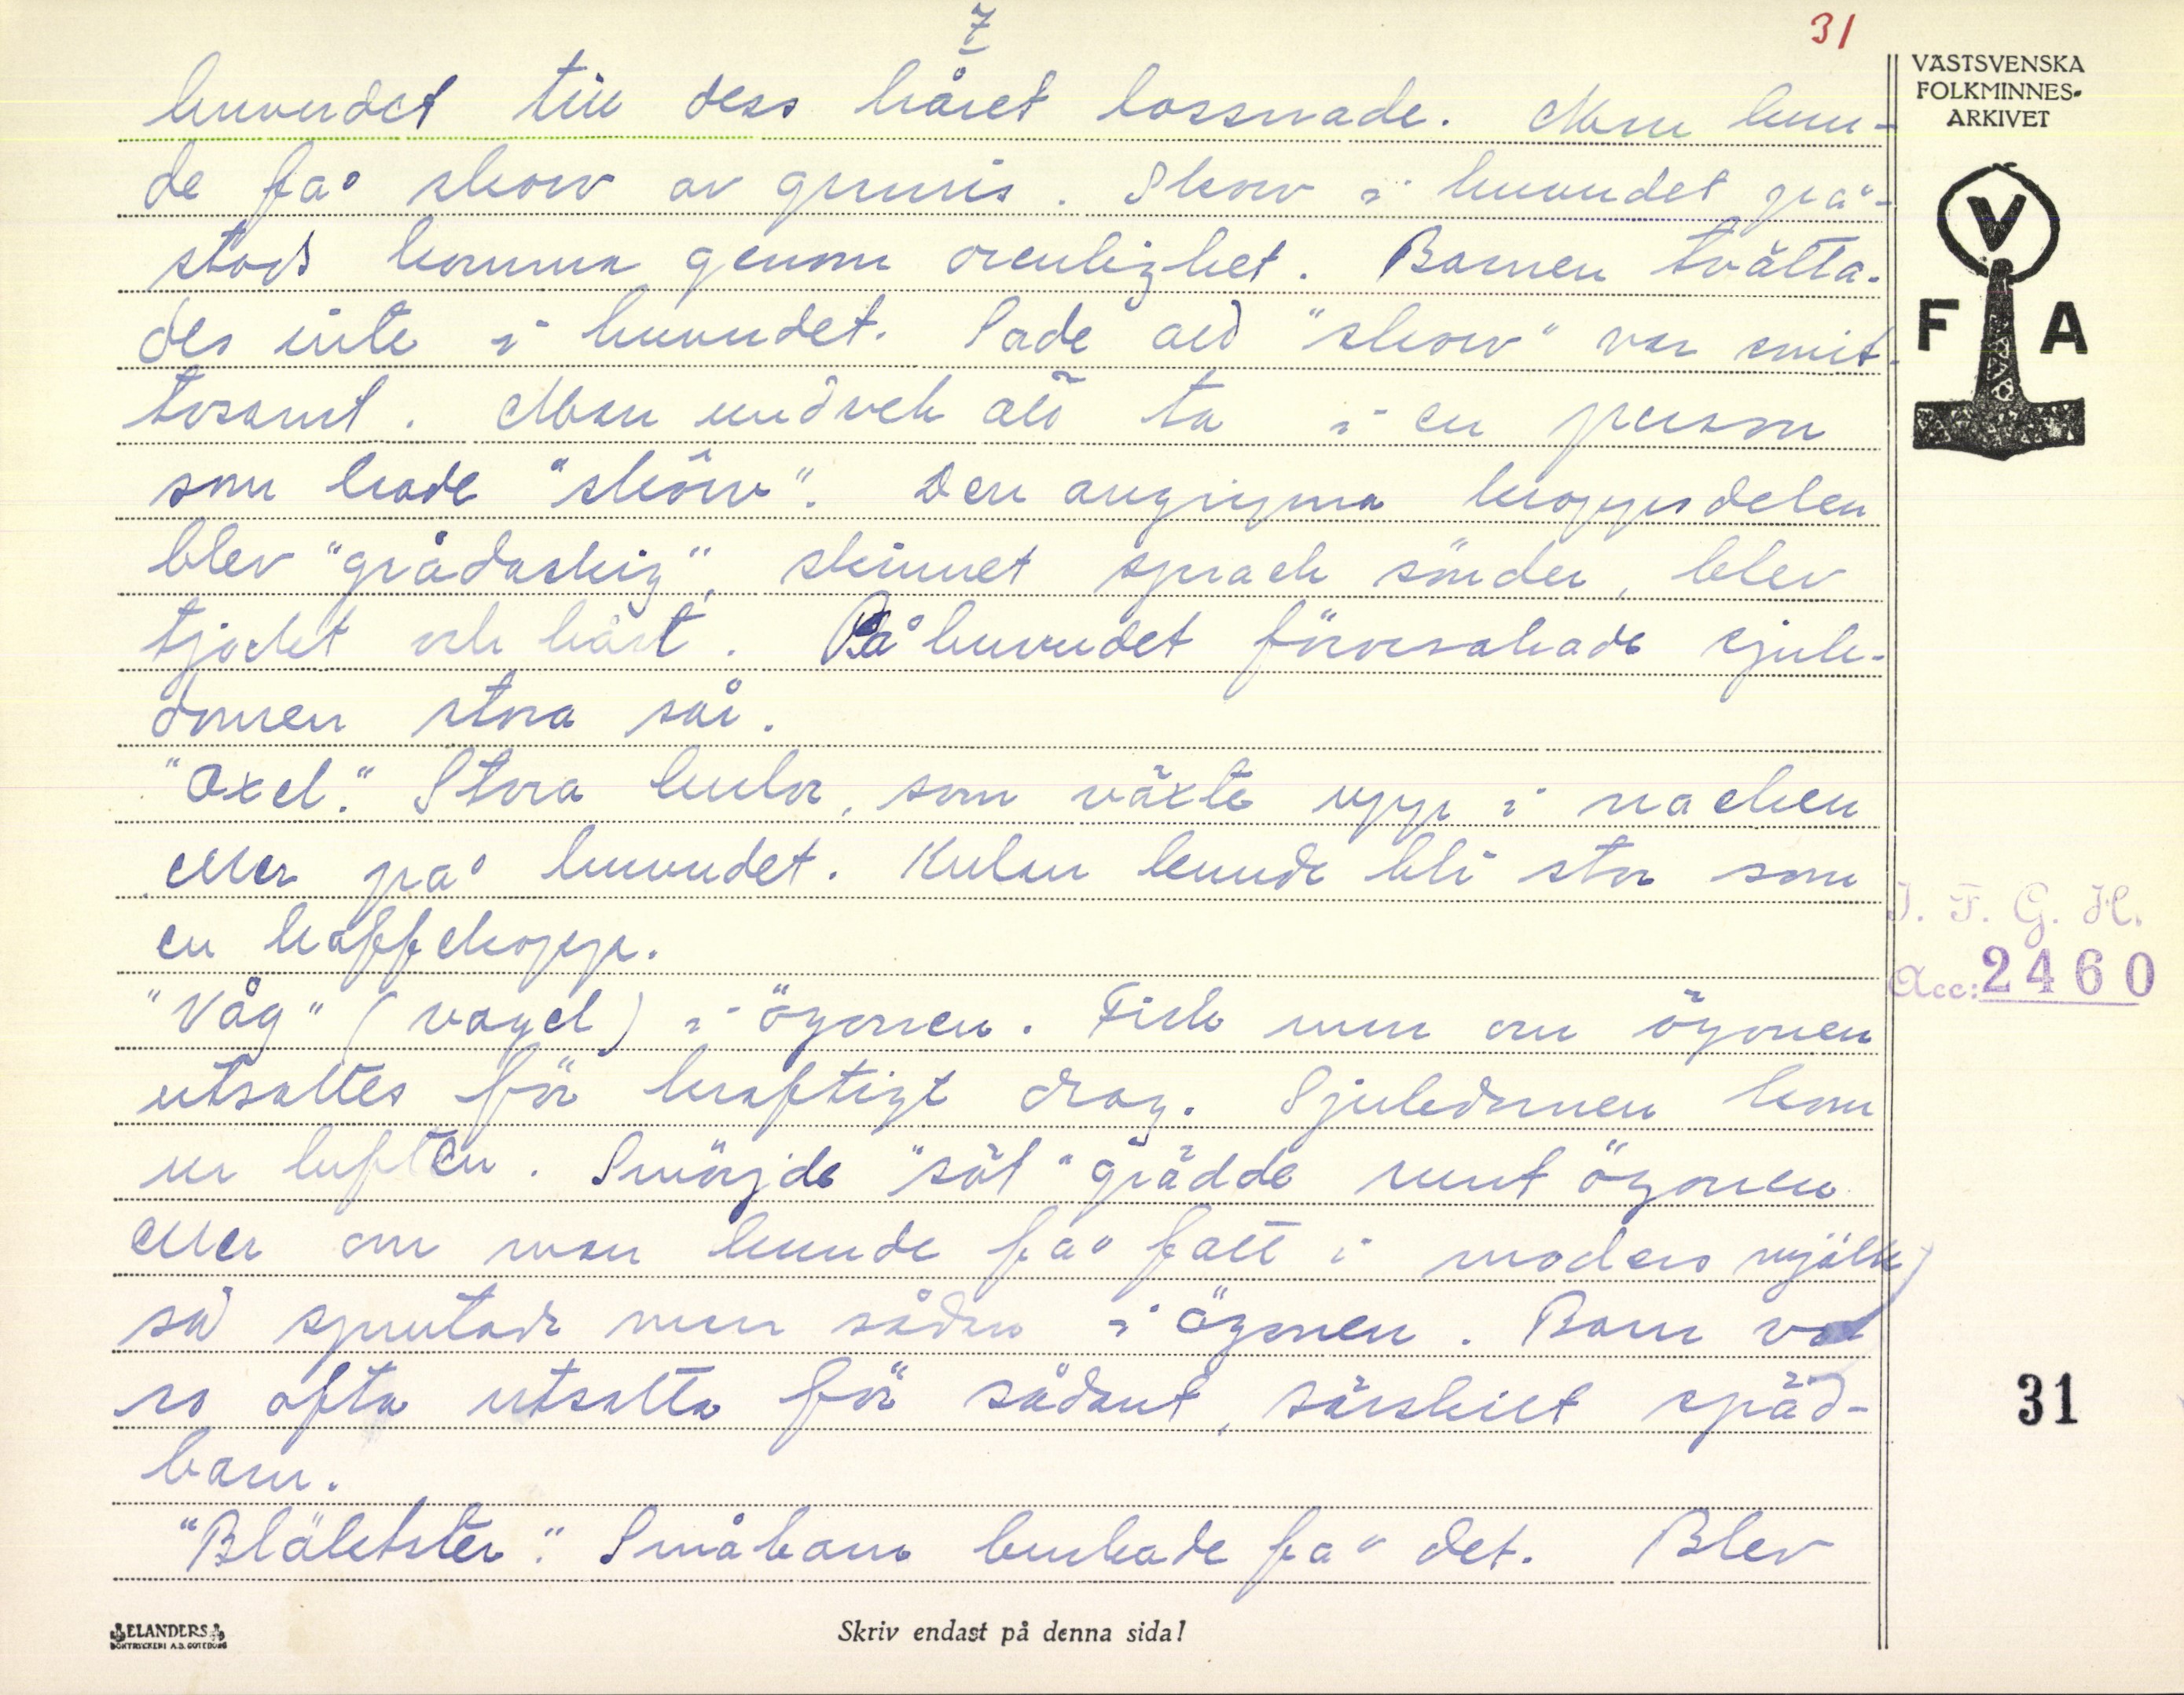 7
31
VÄSTSVENSKA
FOLKMINNES-
ARKIVET
huvudet till dess håret lossnade. Man kun-
de få skorv av grunis. Skorv i huvudet på-
stods komma genom orenlighet. Barnen tvätta-
des inte i huvudet. Sade att "skorv" var smit-
tosamt. Man undvek att ta i en person
som hade "skörv". Den angripna kroppsdelen
blev "grådaskig", skinnet sprack sönder, blev
tjockt och hårt. På huvudet förorsakade sjuk-
domen stora sår.
"Oxel." Stora kulor, som växte upp i nacken
eller på huvudet. Kulan kunde bli stor som
en kaffekopp.
"Våg" (vagel) i ögonen. Fick man om ögonen
utsattes för kraftigt drag. Sjukdomen kom
ur luften. Smörjde "söt" grädde runt ögonen
eller om man kunde få fatt i moders mjölk
så sprutade man sådan i ögonen. Barn va
ro ofta utsatta för sådant, särskilt späd-
barn.
"Bläketster." Småbarn brukade få det. Blev
V
F A
J. F. G. H.
Acc: 2460
31
ELANDERS
BOKTRYCKERI A.B. GÖTEBORG
Skriv endast på denna sida!